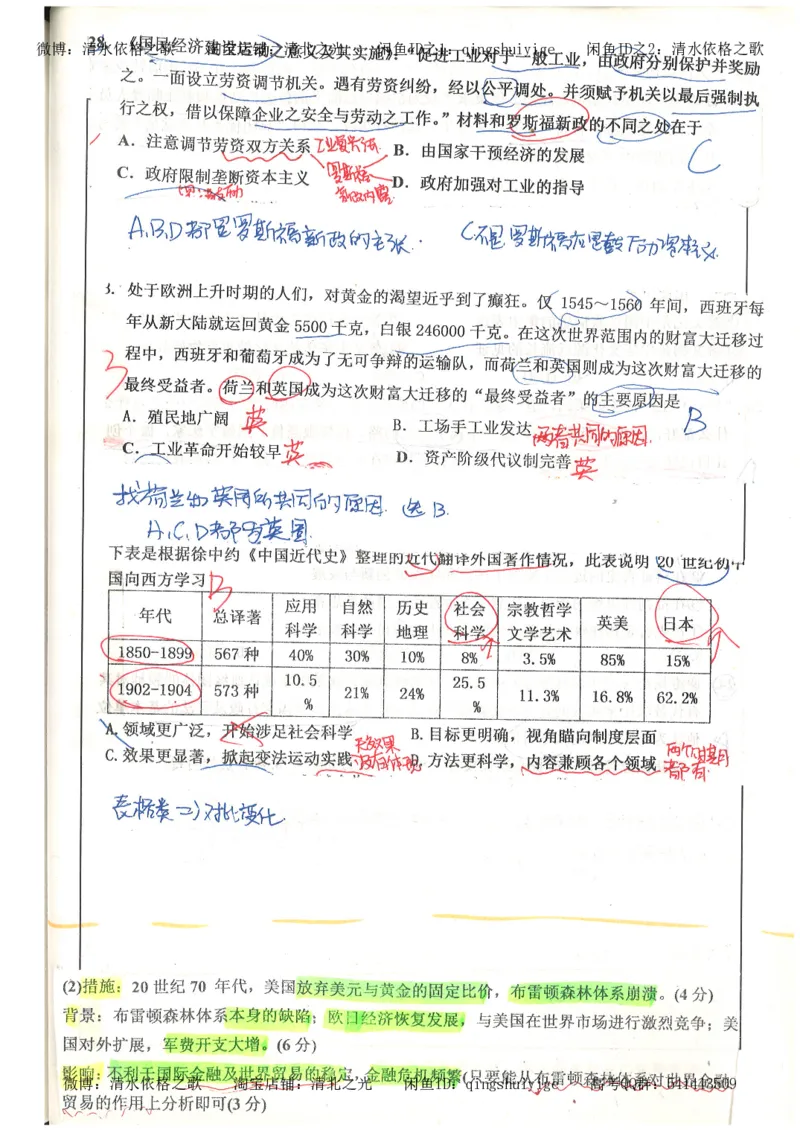 28. 《国民经济建设运动之意义及其实施》：“促进工业对于一般工业，由政府分别保护并奖励
微博：清水依格之歌 淘宝店铺：清北之光 闲鱼ID之1：qingshuiyige 闲鱼ID之2：清水依格之歌
之。一面设立劳资调节机关。遇有劳资纠纷，经以公平调处。并须赋予机关以最后强制执
行之权，借以保障企业之安全与劳动之工作。”材料和罗斯福新政的不同之处在于
A．注意调节劳资双方关系 B．由国家干预经济的发展
C
C．政府限制垄断资本主义 D．政府加强对工业的指导
罗斯福
新政内容
A、B、D都是罗斯福新政的主张. C不是
处于欧洲上升时期的人们，对黄金的渴望近乎到了癫狂。仅 1545～1560 年间，西班牙每
年从新大陆就运回黄金 5500 千克，白银 246000 千克。在这次世界范围内的财富大迁移过
程中，西班牙和葡萄牙成为了无可争辩的运输队，而荷兰和英国则成为这次财富大迁移的
最终受益者。荷兰和英国成为这次财富大迁移的“最终受益者”的主要原因是
B
A．殖民地广阔 英 B．工场手工业发达 两者共同的原因
C．工业革命开始较早 英 D．资产阶级代议制完善 英
找荷兰和英国所共同的原因. 选B.
A、C、D都为英国
下表是根据徐中约《中国近代史》整理的近代翻译外国著作情况，此表说明 20 世纪初中
国向西方学习 B
年代 总译著 应用科学 自然科学 历史地理 社会科学 宗教哲学文学艺术 英美 日本
1850-1899 567 种 40% 30% 10% 8% 3.5% 85% 15%
1902-1904 573 种 10.5% 21% 24% 25.5% 11.3% 16.8% 62.2%
A. 领域更广泛，开始涉足社会科学 B. 目标更明确，视角瞄向制度层面
C. 效果更显著，掀起变法运动实践 无效果 没有体现 D. 方法更科学，内容兼顾各个领域 两个时期都有
表格类⇒对比变化
(2)措施：20 世纪 70 年代，美国放弃美元与黄金的固定比价，布雷顿森林体系崩溃。(4 分)
背景：布雷顿森林体系本身的缺陷；欧日经济恢复发展，与美国在世界市场进行激烈竞争；美
国对外扩展，军费开支大增。(6 分)
影响：不利于国际金融及世界贸易的稳定，金融危机频繁(只要能从布雷顿森林体系对世界金融
微博：清水依格之歌 淘宝店铺：清北之光 闲鱼ID：qingshuiyige 备考QQ群：541443509
贸易的作用上分析即可(3 分)